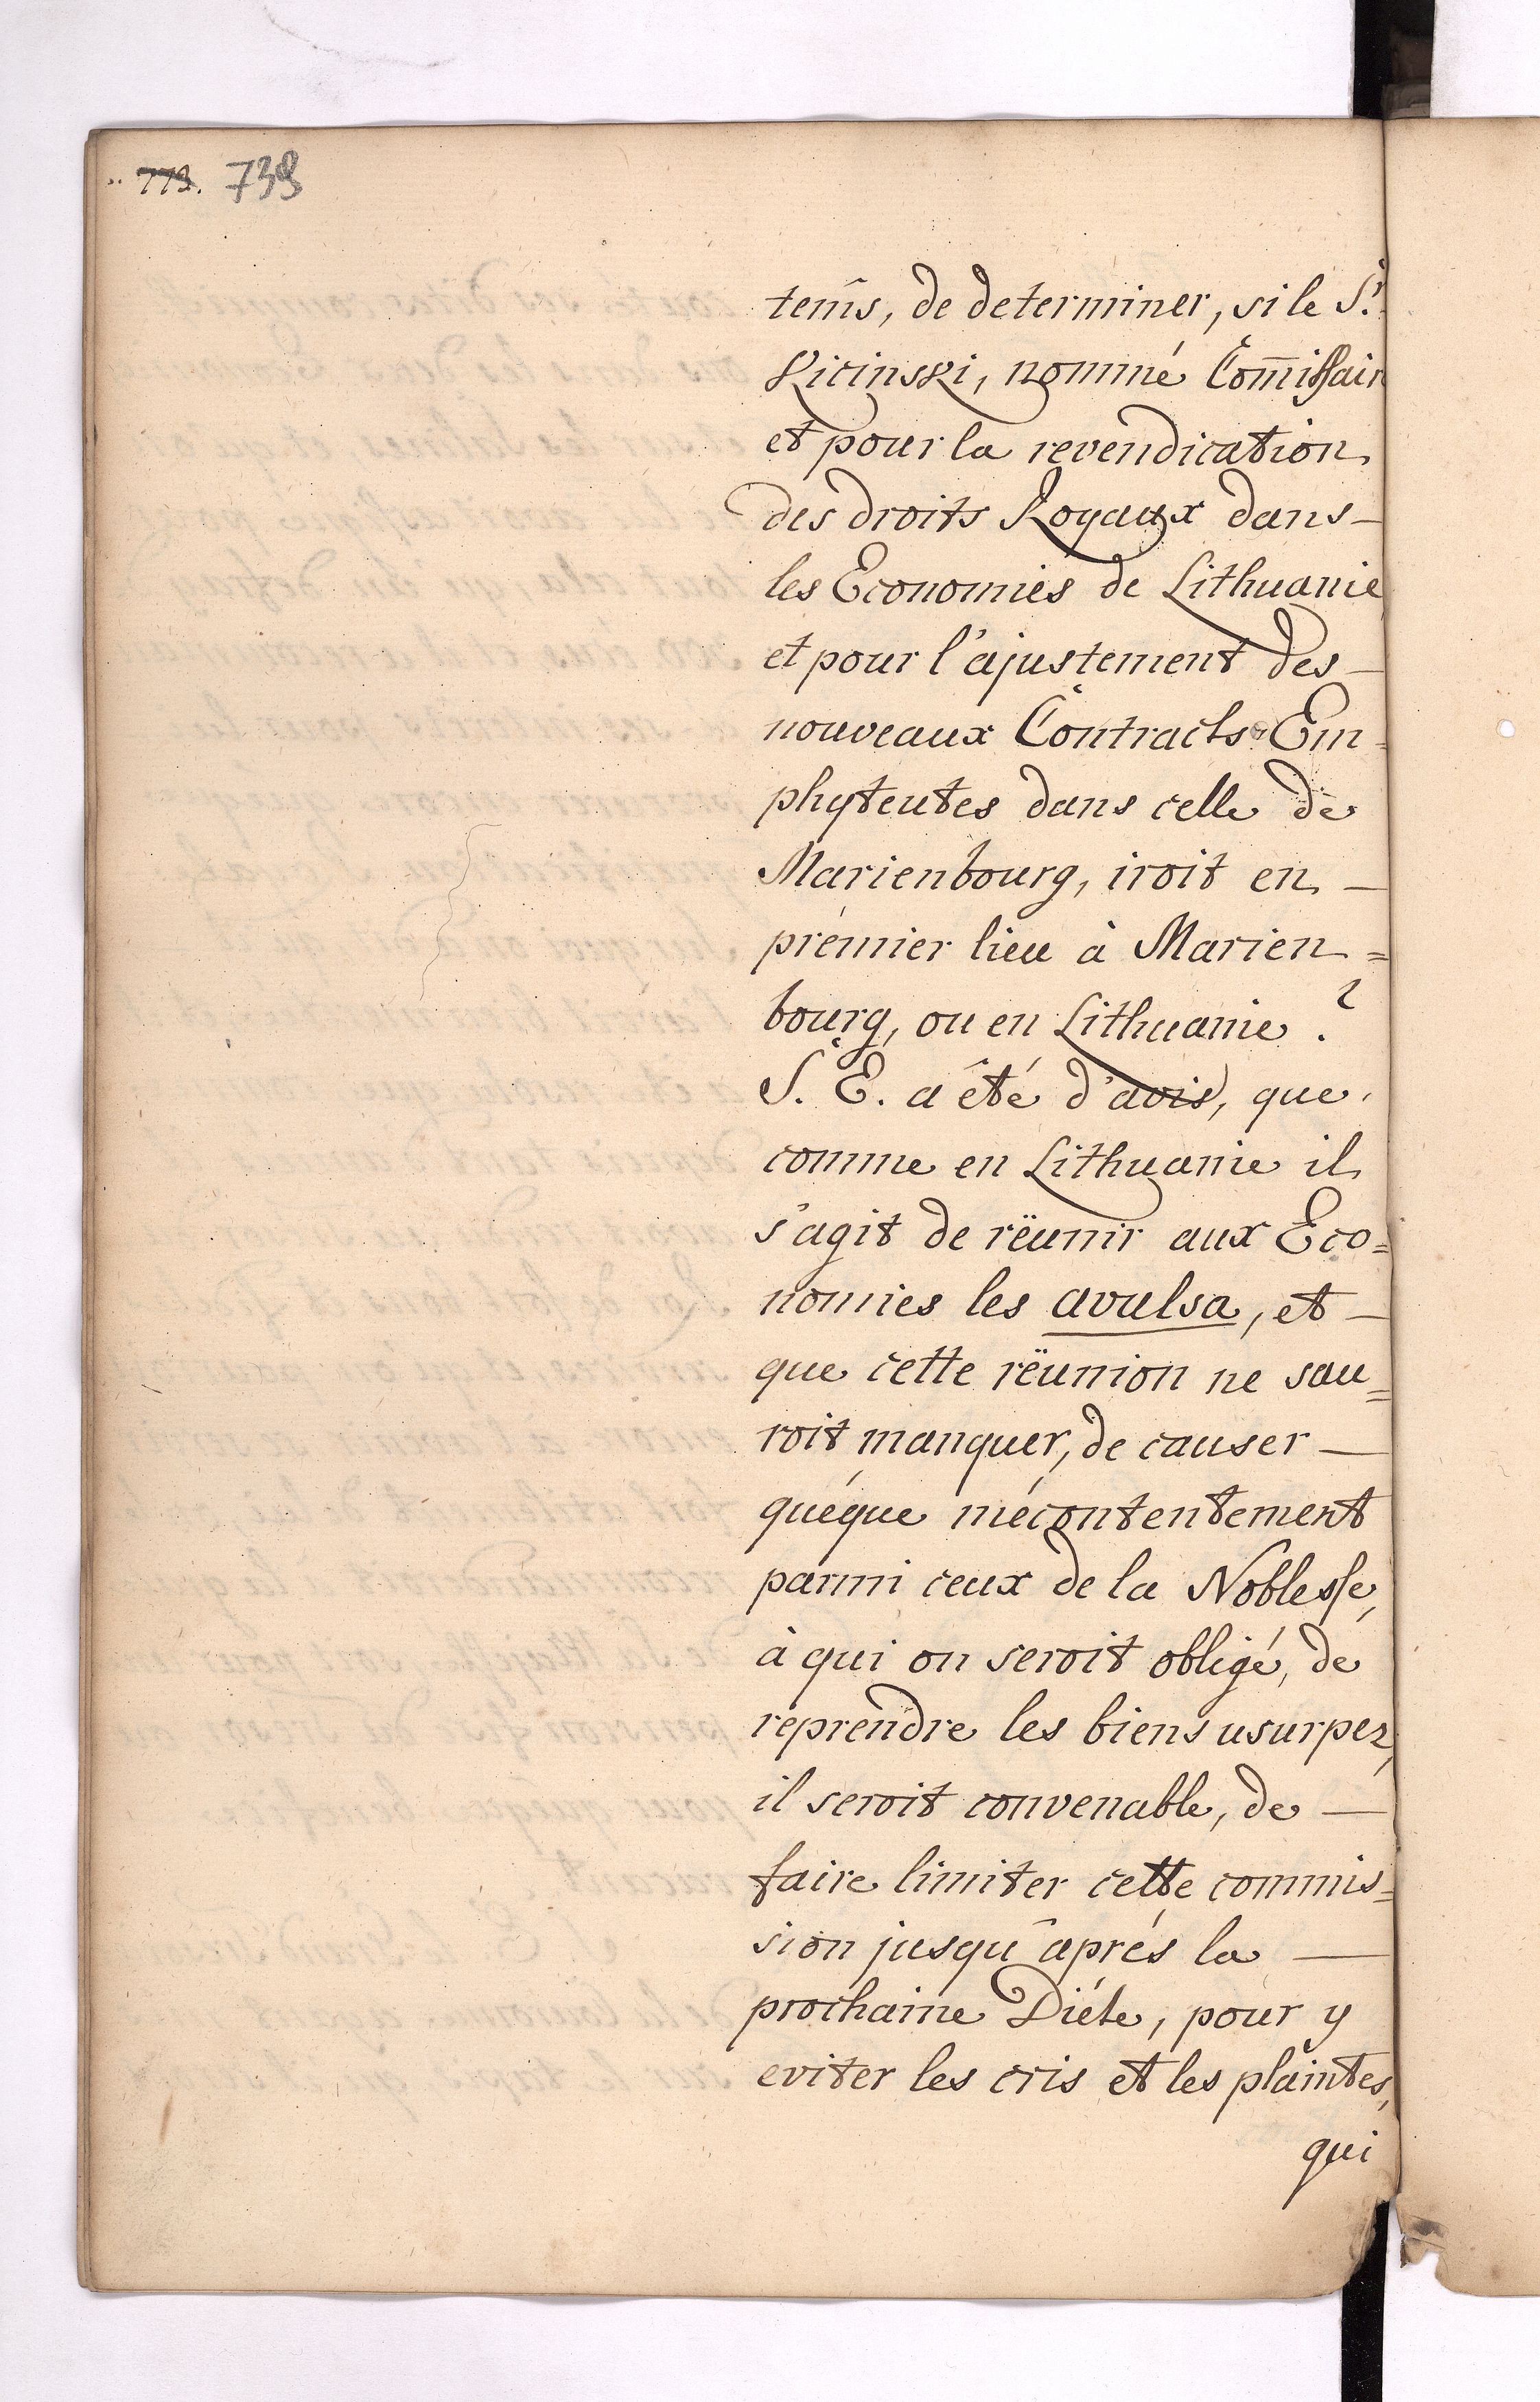 773. 739
tem̄s, de determiner, si le S.r
Kicinski, nommé Com̄issair
et pour la revendication
des droits Royaux dans —
les Economies de Lithuanie
et pour l'ajustement des —
nouveaux Contracts Em=
phyteutes dans celle de
Marienbourg, iroit en —
prémier lieu à Marien=
bourg, ou en Lithuanie?
S. E. a êté d'avis, que
comme en Lithuanie il
s'agit de rëunir aux Eco=
nomies les avulsa, et —
que cette rëunion ne sau=
roit manquer, de causer —
quéque mécontentement
parmi ceux de la Noblesse,
à qui on seroit obligé, de
reprendre les biens usurpez,
il seroit convenable, de —
faire limiter cette commis=
sion jusqu'âprés la —
prochaine Diéte, pour y
eviter les cris et les plaintes,
qui